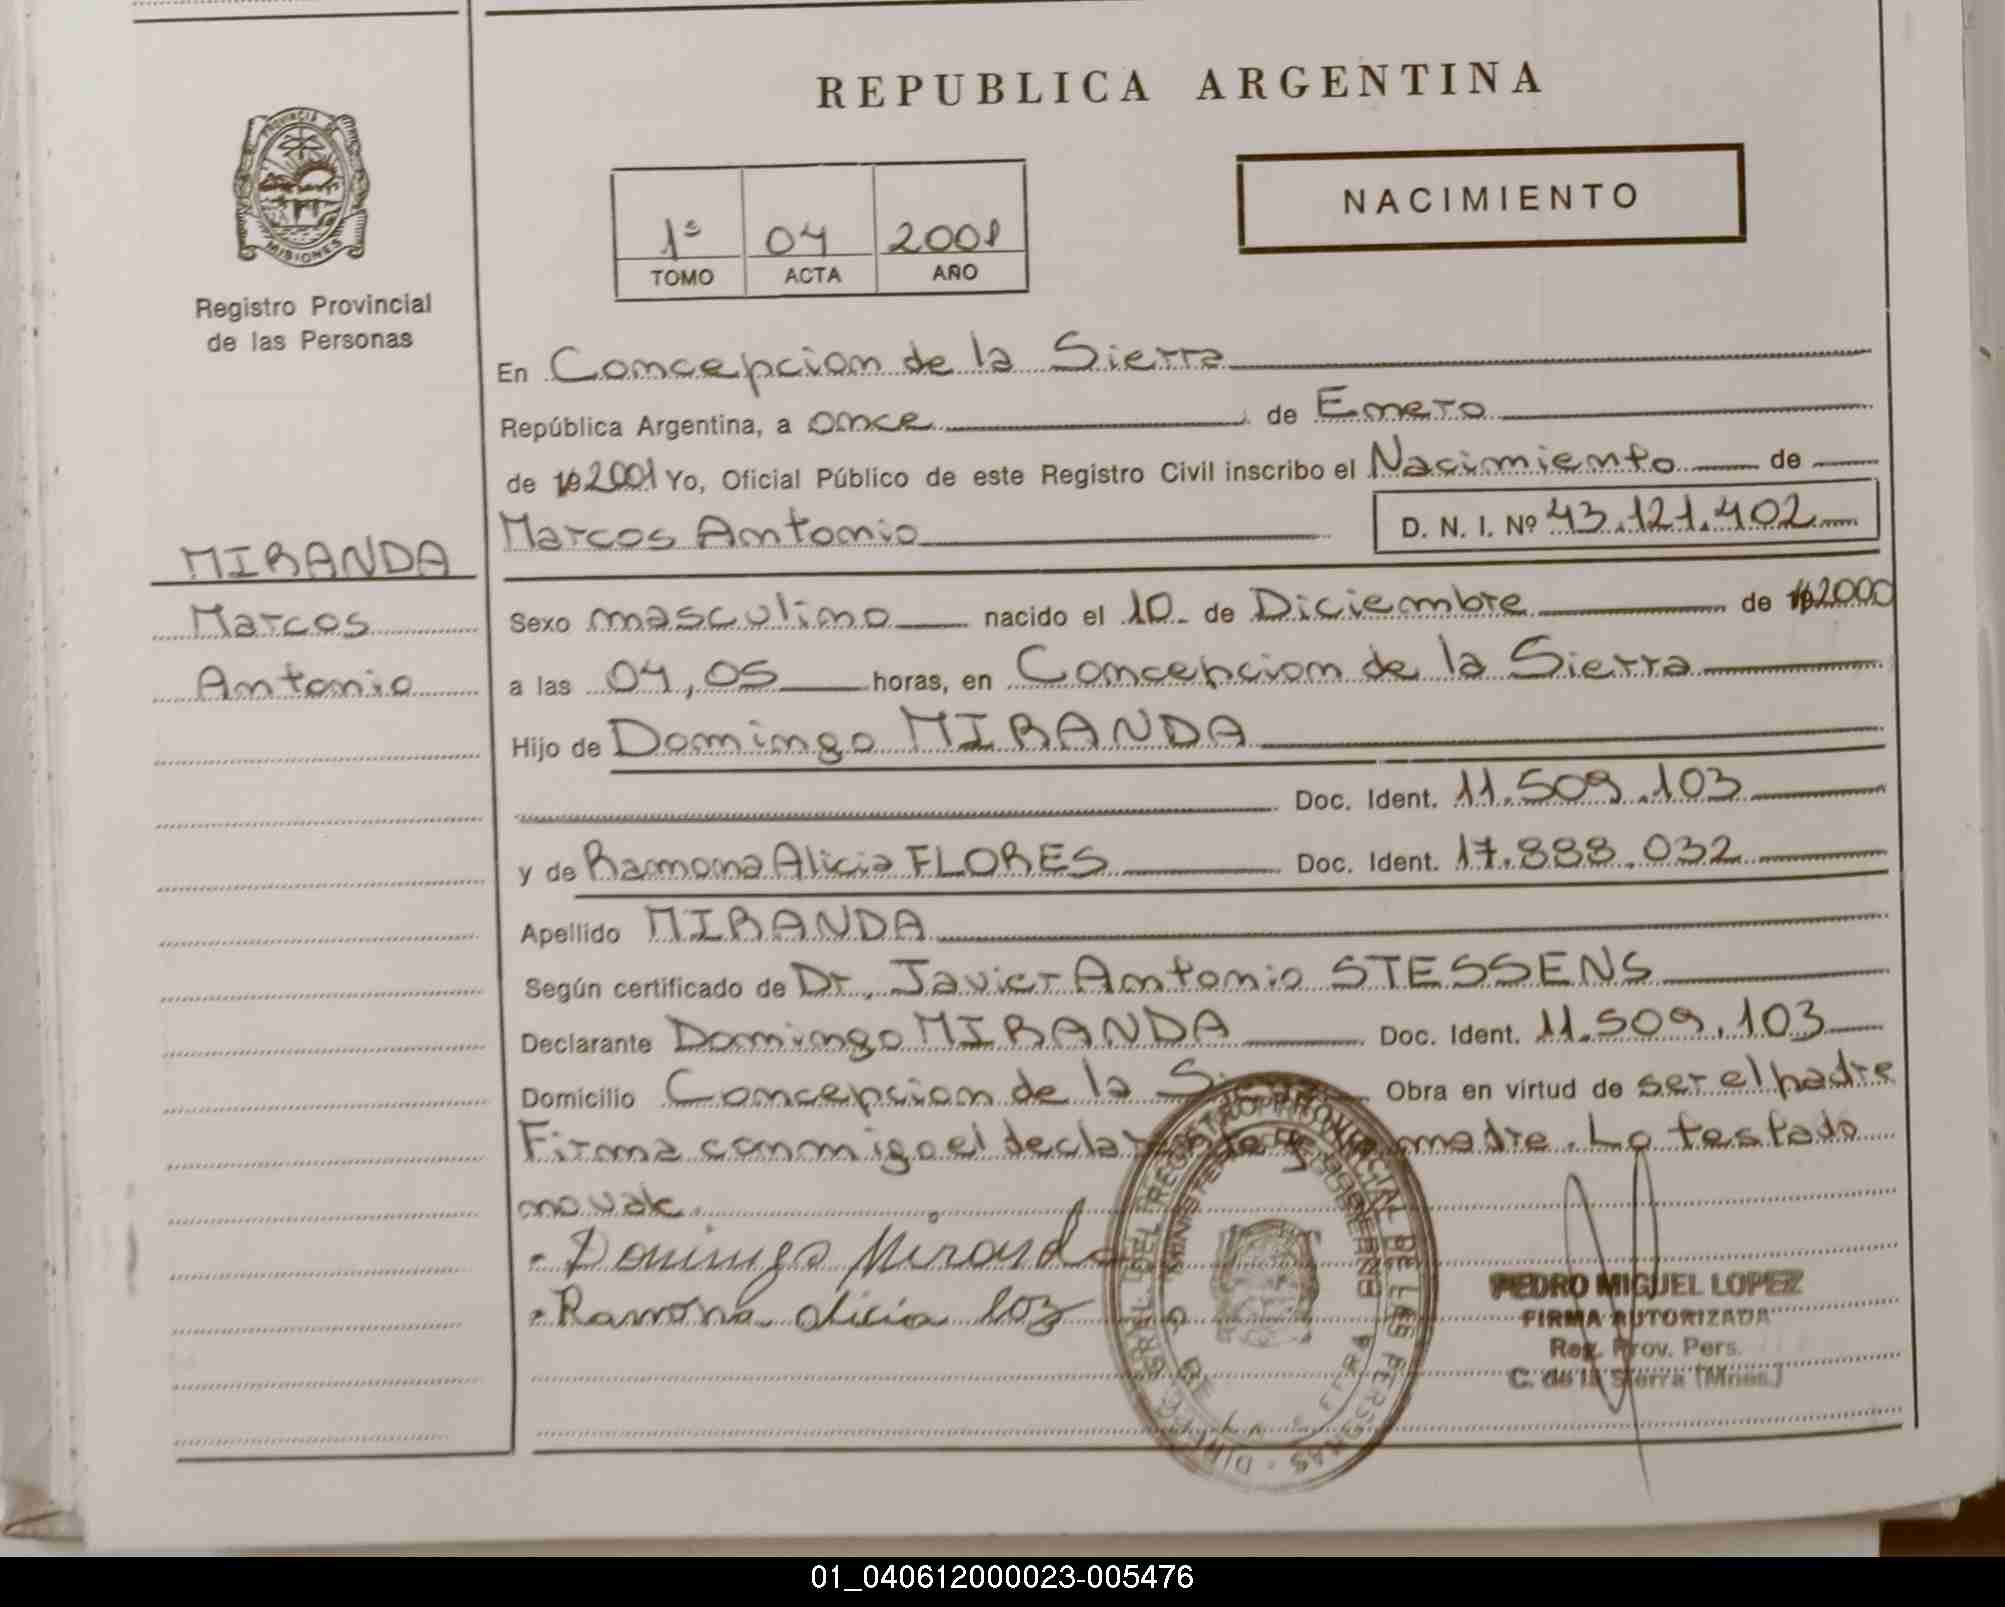 REPUBLICA ARGENTINA
PROVINCIA DE
MISIONES
Registro Provincial
de las Personas
1º 04 2001
TOMO ACTA AÑO
NACIMIENTO
En Concepcion de la Sierra
República Argentina, a once de Enero
de 19 2001 Yo, Oficial Público de este Registro Civil inscribo el Nacimiento de
Marcos Antonio D. N. I. Nº 43.121.402
MIRANDA
Marcos
Antonio
Sexo masculino nacido el 10 de Diciembre de 19 2000
a las 04,05 horas, en Concepcion de la Sierra
Hijo de Domingo MIRANDA
Doc. Ident. 11.509.103
y de Ramona Alicia FLORES Doc. Ident. 17.888.032
Apellido MIRANDA
Según certificado de Dr. Javier Antonio STESSENS
Declarante Domingo MIRANDA Doc. Ident. 11.509.103
Domicilio Concepcion de la Sierra Obra en virtud de ser el padre
Firma conmigo el declarante y la madre. Lo testado
no vale.
Domingo Miranda
Ramona alicia
PEDRO MIGUEL LOPEZ
FIRMA AUTORIZADA
Reg. Prov. Pers.
C. de la Sierra (Mnes.)
DEL REGISTRO PROVINCIAL DE LAS PERSONAS
MINISTERIO DE GOBIERNO
01_040612000023-005476